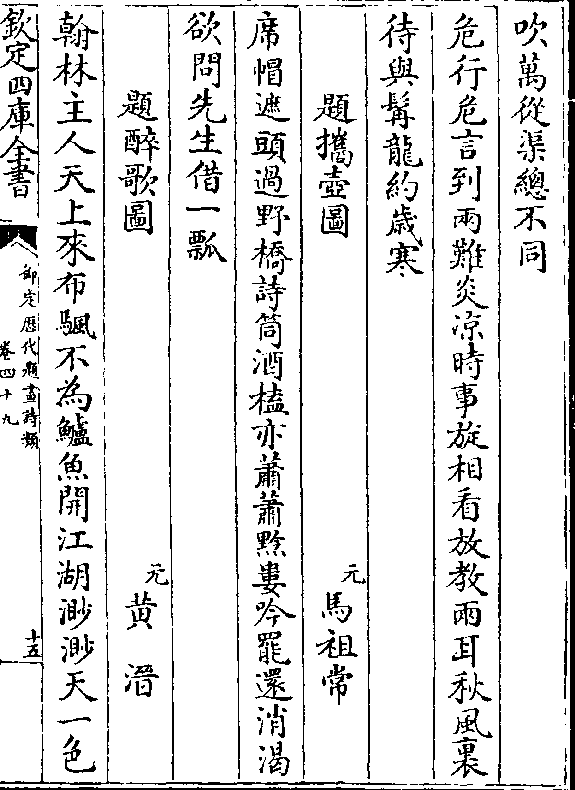 吹萬從渠總不同
危行危言到兩難炎凉時事旋相看放教兩耳秋風裏
待與髯龍約歳寒
題攜壺圖　元馬祖常
席帽遮頭過野橋詩筒酒榼亦蕭蕭黔婁吟罷還消渴
欲問先生借一瓢
題醉歌圖　元黄溍
翰林主人天上來布颿不為鱸魚開江湖渺渺天一色
欽定四庫全書
御定歴代題畫詩類
卷四十九
十五